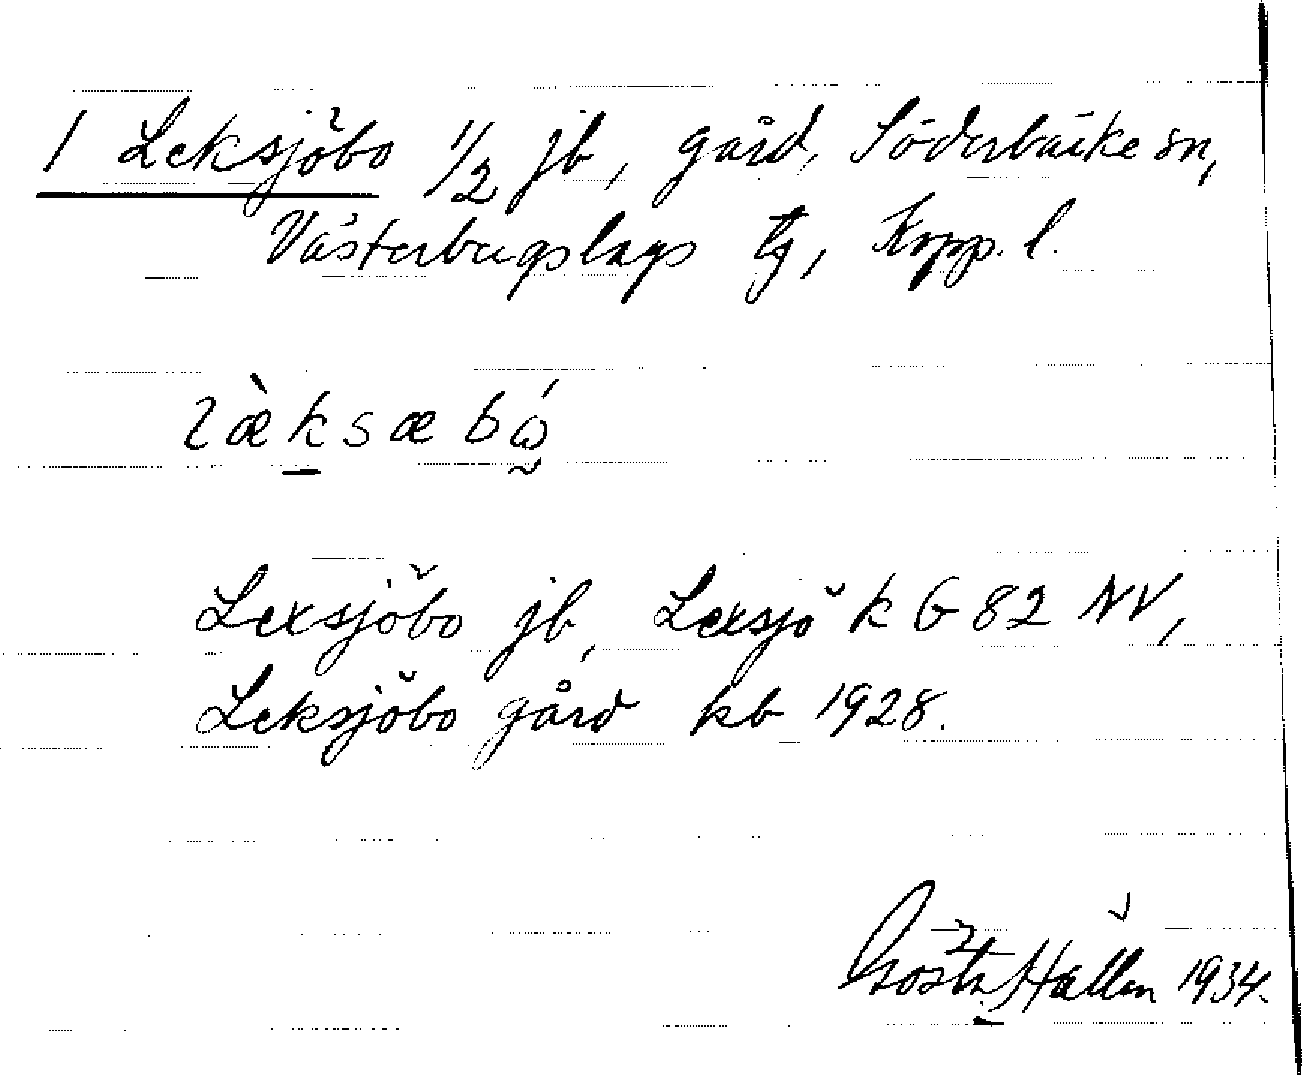 1 Leksjöbo 1/2 jb, gård, Söderbärke sn,
Västerbergslags tg, Kopp. l.
læ̀ksæbó
Lexsjöbo jb, Lexsjö k G 82 NV,
Leksjöbo gård kb 1928.
Gösta Hallén 1934.